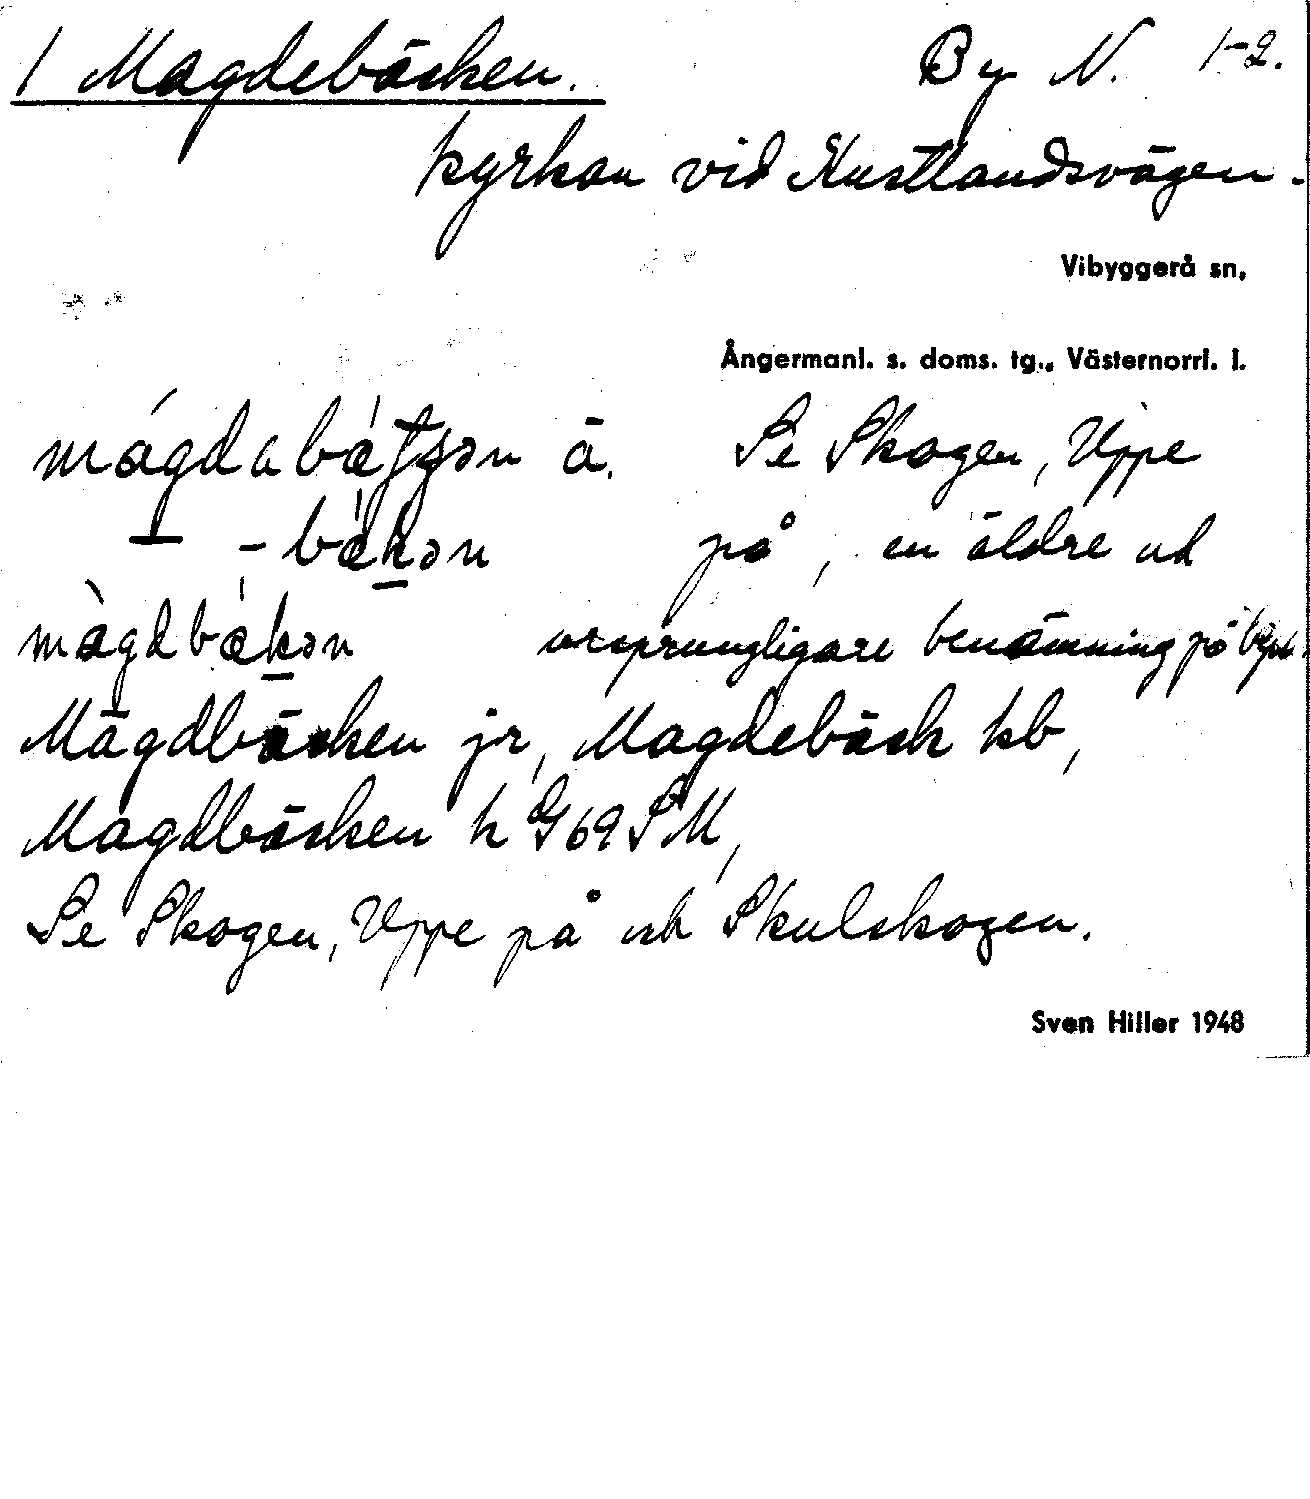 1 Magdebäcken. By N. 1-2.
kyrkan vid Kustlandsvägen.
Vibyggerå sn,
Ångermanl. s. doms. tg., Västernorrl. l.
mágdabǽtʃən ä. Se Skogen, Uppe
— -bǽkən på, en äldre och
màgdbǽkən ursprungligare benämning på byn.
Mägdbäcken jr, Magdebäck kb,
Magdbäcken h G69SM,
Se Skogen, Uppe på och Skulskogen.
Sven Hiller 1948